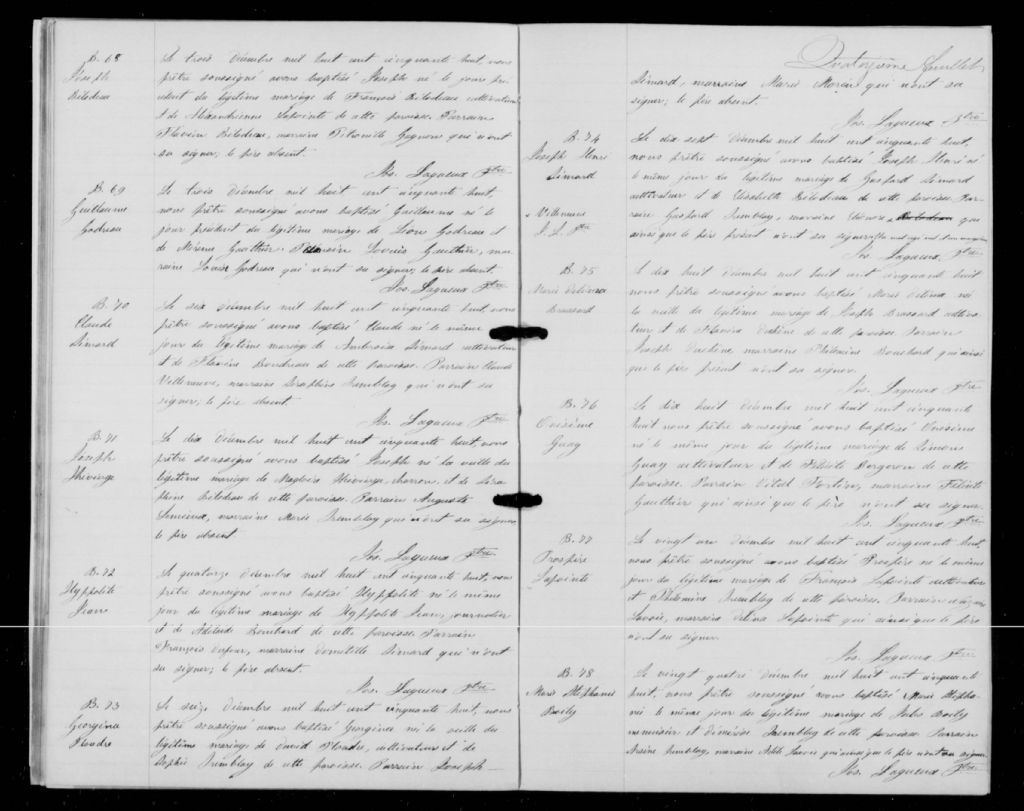 B. 68
Joseph
Bilodeau
Le trois décembre mil huit cent cinquante huit, nous
prêtre soussigné avons baptisé Joseph né le jour pré-
cédent du légitime mariage de François Bilodeau cultivateur
et de Alexandrienne Lapointe de cette paroisse. Parrain
Flavien Bilodeau, marraine Pétronille Gagnon qui n'ont
su signer; le père absent.
Jos. Lagueux Ptre
B. 69
Guillaume
Godreau
Le trois décembre mil huit cent cinquante huit,
nous prêtre soussigné avons baptisé Guillaume né le
jour précédent du légitime mariage de Léon Godreau et
de Gauthier. Parrain Louis Gauthier, mar-
raine Louise Godreau qui n'ont su signer; le père absent
Jos. Lagueux Ptre
B. 70
Claude
Simard
Le six décembre mil huit cent cinquante huit, nous
prêtre soussigné avons baptisé Claude né le même
jour du légitime mariage de Ambroise Simard cultivateur
et de Flavie Boudreau de cette paroisse. Parrain Claude
Villeneuve, marraine Séraphine Tremblay qui n'ont su
signer; le père absent.
Jos. Lagueux Ptre
B. 71
Joseph
Thivierge
Le dix décembre mil huit cent cinquante huit, nous
prêtre soussigné avons baptisé Joseph né la veille du
légitime mariage de Magloire Thivierge, charron, et de Séra-
phine Bilodeau de cette paroisse. Parrain Auguste
Lemieux, marraine Marie Tremblay qui n'ont su signer
le père absent.
Jos. Lagueux Ptre
B. 72
Hyppolite
Jean
Le quatorze décembre mil huit cent cinquante huit, nous
prêtre soussigné avons baptisé Hyppolite né le même
jour du légitime mariage de Hyppolite Jean, journalier
et de Adélaïde Bouchard de cette paroisse. Parrain
François Dufour, marraine Domitille Simard qui n'ont
su signer; le père absent.
Jos. Lagueux Ptre
B. 73
Georgina
Plourde
Le seize décembre mil huit cent cinquante huit, nous
prêtre soussigné avons baptisé Georgina née la veille du
légitime mariage de David Plourde, cultivateur et de
Sophie Tremblay de cette paroisse. Parrain Joseph
Quatorzième feuillet
Simard, marraine Marie Morin qui n'ont su
signer; le père absent.
Jos. Lagueux Ptre
B. 74
Joseph Henri
Simard
Villeneuve
J. L. Ptre
Le dix sept décembre mil huit cent cinquante huit,
nous prêtre soussigné avons baptisé Joseph Henri né
le même jour du légitime mariage de Gaspard Simard
cultivateur et de Elisabeth Bilodeau de cette paroisse. Par-
rain Gaspard Tremblay, marraine Bilodeau qui
ainsi que le père présent n'ont su signer
Jos. Lagueux Ptre
B. 75
Marie Delima
Brassard
Le dix huit décembre mil huit cent cinquante huit
nous prêtre soussigné avons baptisé Marie Delima née
la veille du légitime mariage de Joseph Brassard cultiva-
teur et de de cette paroisse. Parrain
Joseph marraine Philomène Bouchard qui ainsi
que le père présent n'ont su signer.
Jos. Lagueux Ptre
B. 76
Onésime
Guay
Le dix huit décembre mil huit cent cinquante
huit nous prêtre soussigné avons baptisé Onésime
né le même jour du légitime mariage de Simon
Guay cultivateur et de Félicité Bergeron de cette
paroisse. Parrain Vital Fortier, marraine Félicité
Gauthier qui ainsi que le père n'ont su signer.
Jos. Lagueux Ptre
B. 77
Prospère
Lapointe
Le vingt un décembre mil huit cent cinquante huit,
nous prêtre soussigné avons baptisé Prospère né le même
jour du légitime mariage de François Lapointe cultivateur
et Philomène Tremblay de cette paroisse. Parrain
Savoie, marraine Delina Lapointe qui ainsi que le père
n'ont su signer.
Jos. Lagueux Ptre
B. 78
Marie Stéphanie
Boily
Le vingt quatre décembre mil huit cent cinquante
huit, nous prêtre soussigné avons baptisé Marie Stépha-
nie née le même jour du légitime mariage de Jules Boily
menuisier et Tremblay de cette paroisse. Parrain
Tremblay, marraine Savoie qui ainsi que le père n'ont su signer
Jos. Lagueux Ptre